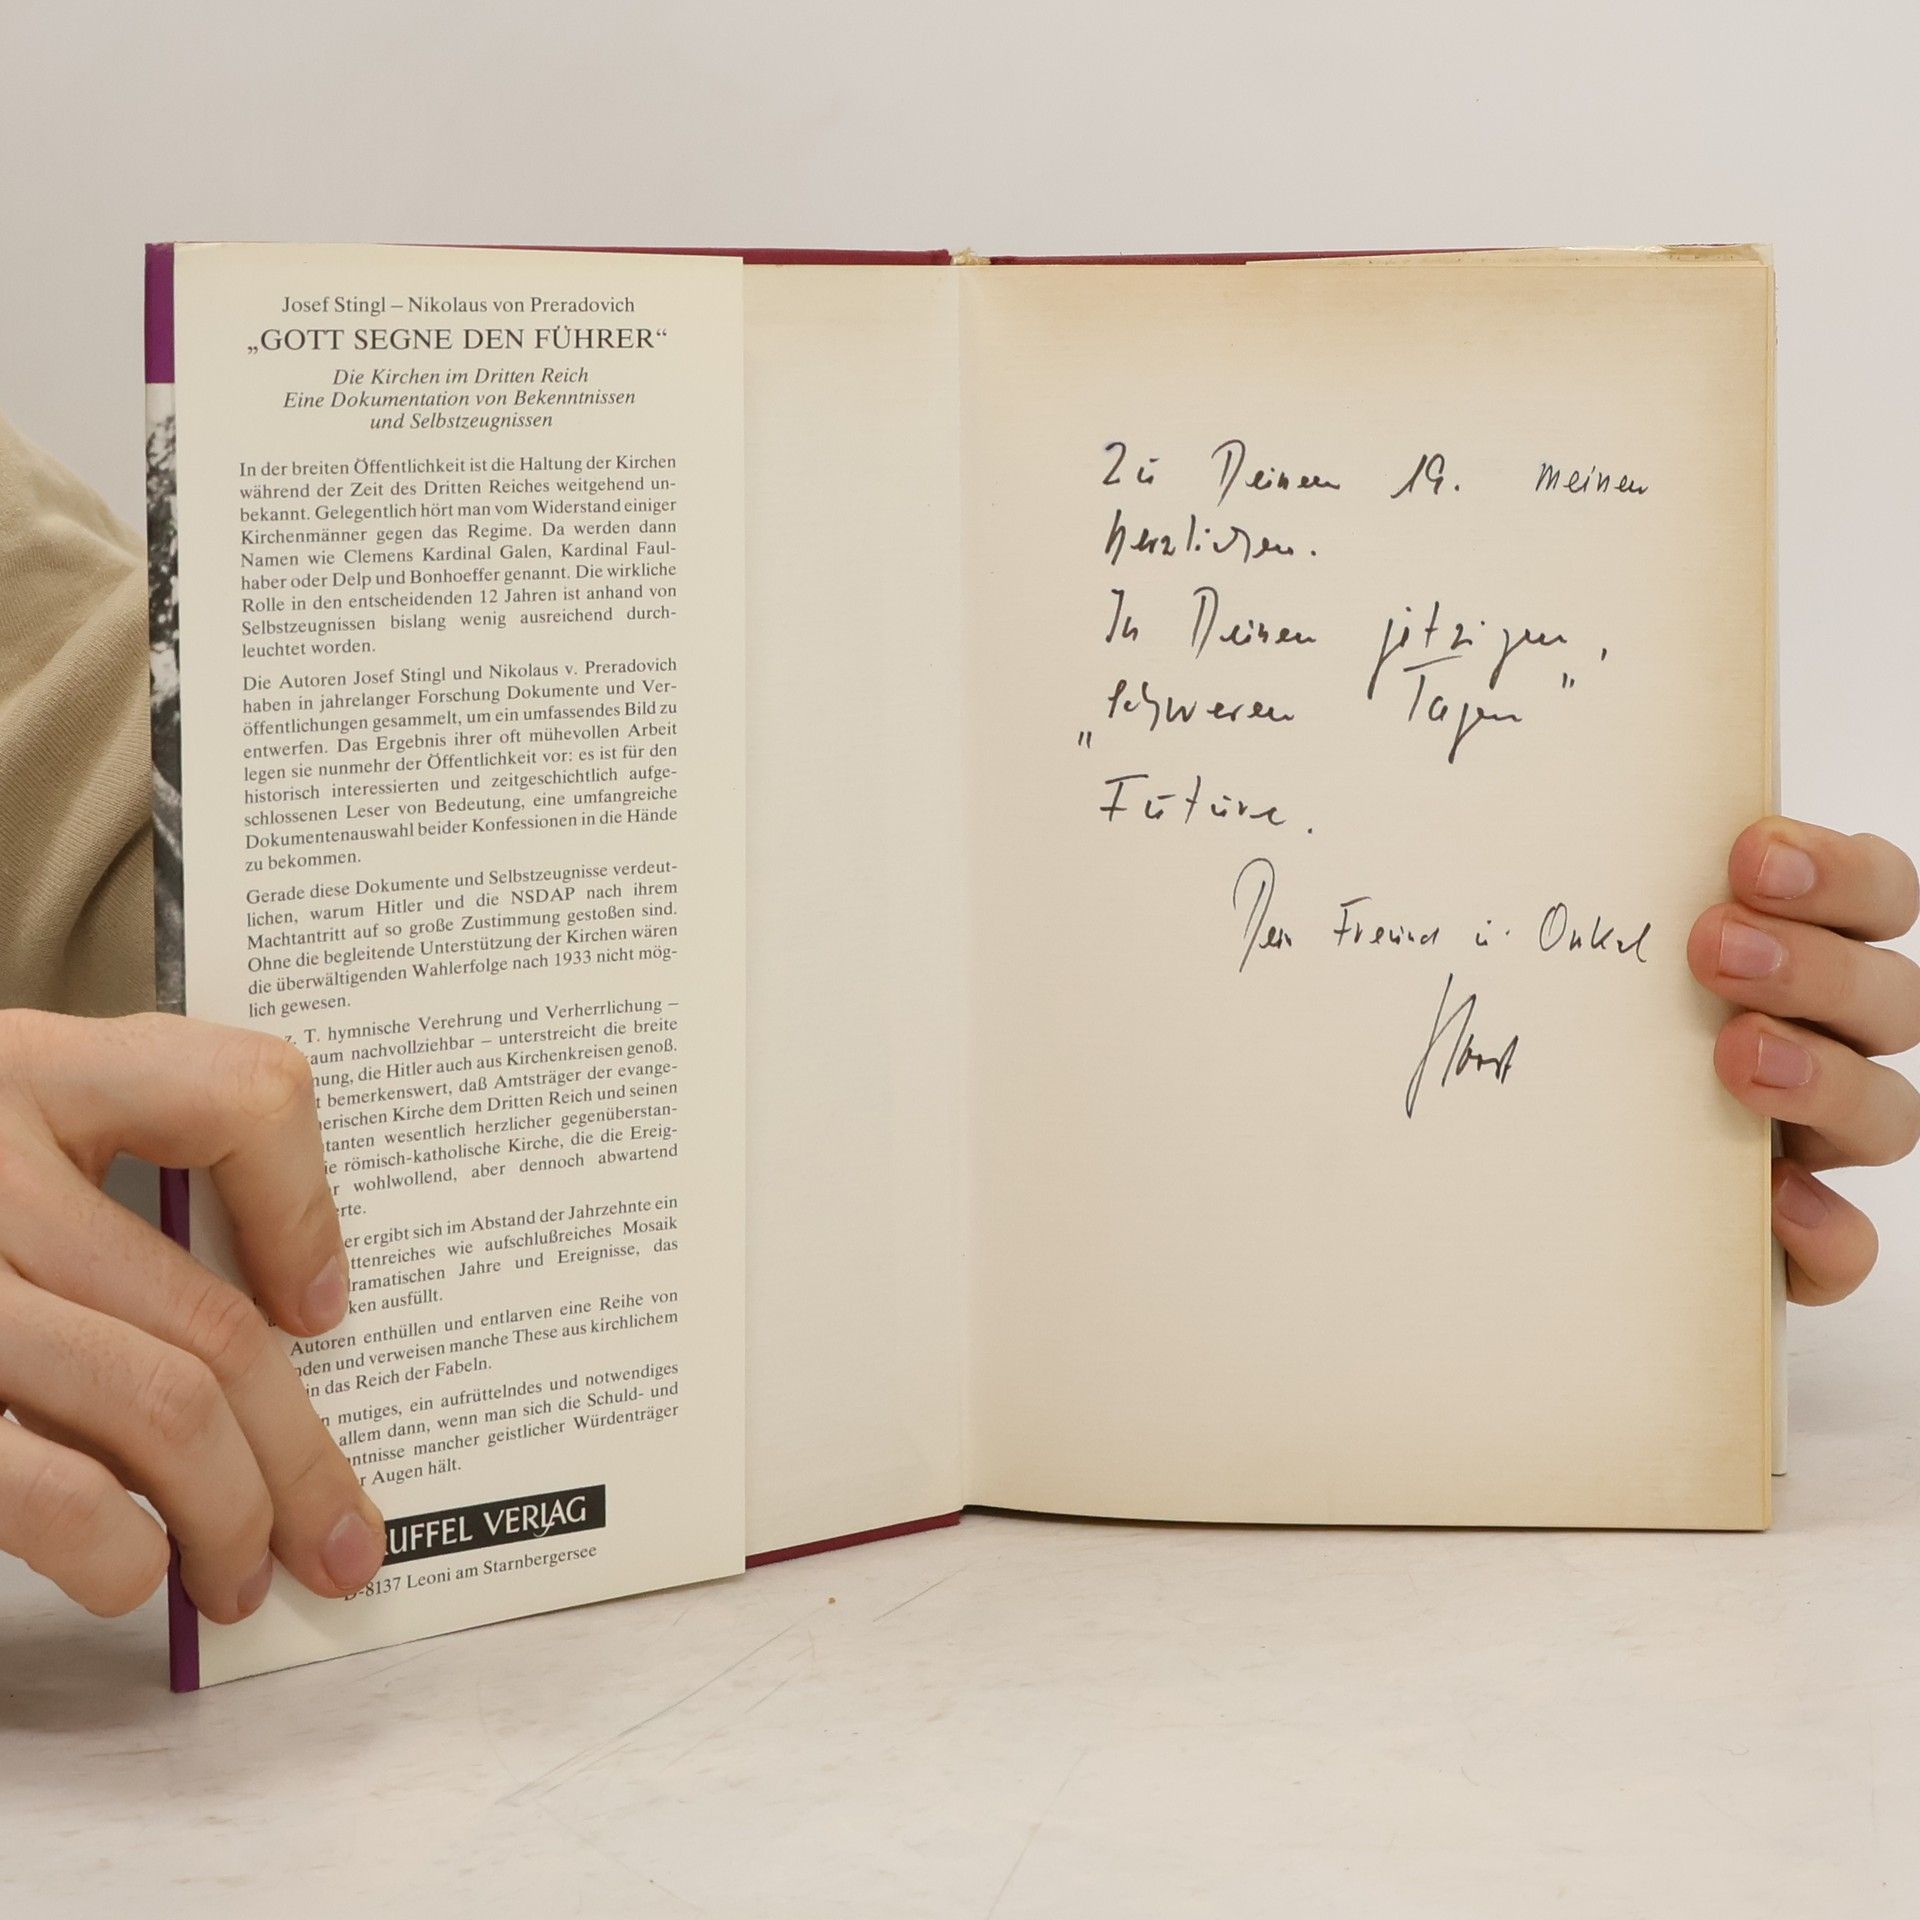 Josef Stingl – Nikolaus von Preradovich
„GOTT SEGNE DEN FÜHRER“
Die Kirchen im Dritten Reich
Eine Dokumentation von Bekenntnissen
und Selbstzeugnissen
In der breiten Öffentlichkeit ist die Haltung der Kirchen
während der Zeit des Dritten Reiches weitgehend un-
bekannt. Gelegentlich hört man vom Widerstand einiger
Kirchenmänner gegen das Regime. Da werden dann
Namen wie Clemens Kardinal Galen, Kardinal Faul-
haber oder Delp und Bonhoeffer genannt. Die wirkliche
Rolle in den entscheidenden 12 Jahren ist anhand von
Selbstzeugnissen bislang wenig ausreichend durch-
leuchtet worden.
Die Autoren Josef Stingl und Nikolaus v. Preradovich
haben in jahrelanger Forschung Dokumente und Ver-
öffentlichungen gesammelt, um ein umfassendes Bild zu
entwerfen. Das Ergebnis ihrer oft mühevollen Arbeit
legen sie nunmehr der Öffentlichkeit vor: es ist für den
historisch interessierten und zeitgeschichtlich aufge-
schlossenen Leser von Bedeutung, eine umfangreiche
Dokumentenauswahl beider Konfessionen in die Hände
zu bekommen.
Gerade diese Dokumente und Selbstzeugnisse verdeut-
lichen, warum Hitler und die NSDAP nach ihrem
Machtantritt auf so große Zustimmung gestoßen sind.
Ohne die begleitende Unterstützung der Kirchen wären
die überwältigenden Wahlerfolge nach 1933 nicht mög-
lich gewesen.
z. T. hymnische Verehrung und Verherrlichung –
kaum nachvollziehbar – unterstreicht die breite
nung, die Hitler auch aus Kirchenkreisen genoß.
t bemerkenswert, daß Amtsträger der evange-
herischen Kirche dem Dritten Reich und seinen
tanten wesentlich herzlicher gegenüberstan-
ie römisch-katholische Kirche, die die Ereig-
r wohlwollend, aber dennoch abwartend
rte.
er ergibt sich im Abstand der Jahrzehnte ein
ttenreiches wie aufschlußreiches Mosaik
dramatischen Jahre und Ereignisse, das
ken ausfüllt.
Autoren enthüllen und entlarven eine Reihe von
nden und verweisen manche These aus kirchlichem
in das Reich der Fabeln.
n mutiges, ein aufrüttelndes und notwendiges
allem dann, wenn man sich die Schuld- und
ntnisse mancher geistlicher Würdenträger
r Augen hält.
RUFFEL VERLAG
D-8137 Leoni am Starnbergersee
Zu Deinem 19. meinen
herzlichen.
In Deinen jetzigen,
„schweren Tagen"
Future.
Dein Freund u. Onkel
Horst